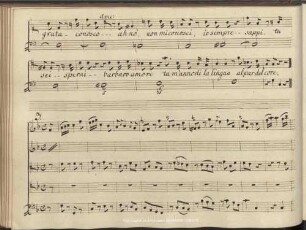 grata conosco ah nò non mi conosci, io sempre sappi tu
sei sperai barbaro amori tu m'annodi la lingua al par del core.